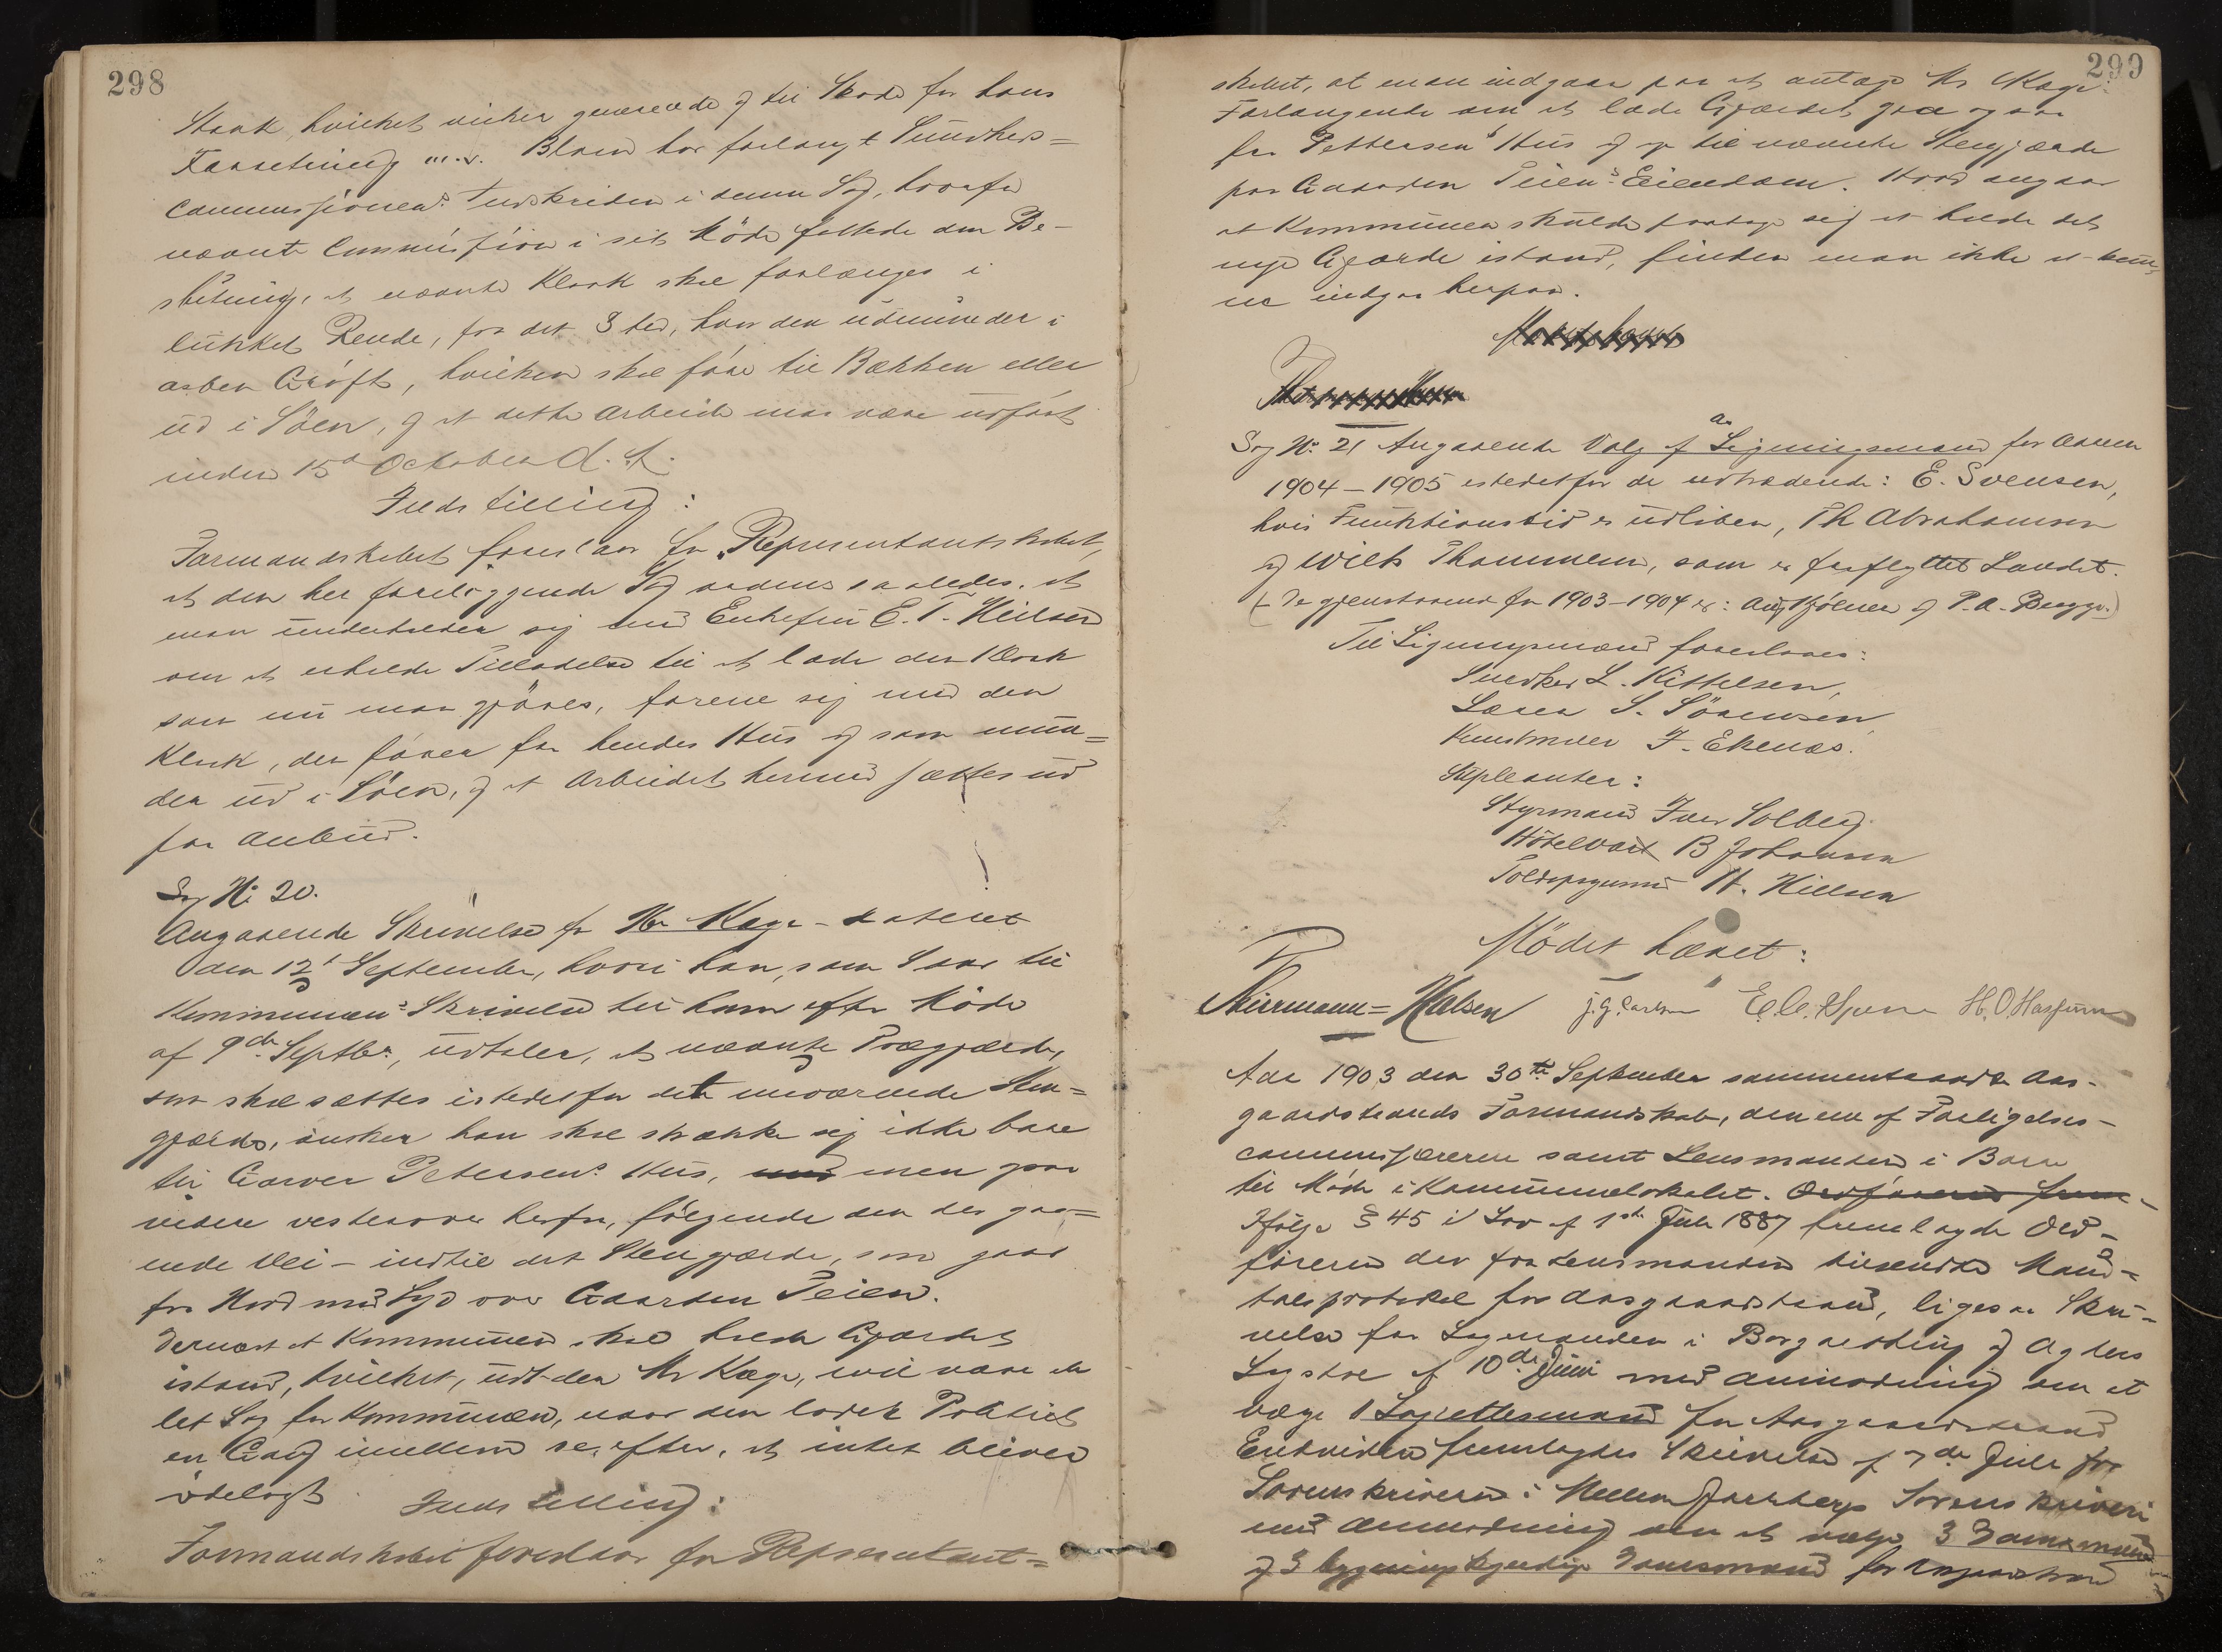 298
Stank, hvilket virker generende og til Skade for hans
Forretning m.v. Bloin har forlangt Sundheds=
Commissionens Indskriden i denne Sag, hvorfor
nævnte Commission i sit Möde fattede den Be-
slutning, at nævnte Kloak skal forlænges i
lukket Rende, fra det Sted, hvor den udmunder i
aaben Gröft, hvilken skal före til Bækken eller
ud i Söen, og at dette Arbeide maa være udfört
inden 15de October d. A.
Indstilling:
Formandskabet foreslaar for Representantskabet,
at den her foreliggende Sag ordnes saaledes, at
man underholder sig med Enkefru E. T. Nielsen
om at erholde Tilladelse til at lade den Kloak
som nu maa gjöres, forene sig med den
Kloak, der förer fra hendes Hus og som mun=
der ud i Söen, og at Arbeidet hermed sættes ud
for Anbud.
Sag No 20.
Angaaende Skrivelse fra Hr Kage - dateret
den 12te September, hvori han, som Svar til
Kommunens Skrivelse til ham efter Möde
af 9de Septbr, udtaler, at nævnte Trægjærde,
som skal sættes istedetfor det nuværende Sten=
gjærde, önsker han skal strække sig ikke bare
til Garver Petersens Hus, med men gaa
videre vestenover herfra, fölgende den der gaa=
ende Vei - indtil det Stengjærde, som gaar
fra Nord mod Syd over Gaarden Teien.
Dernæst at Kommunen skal holde Gjærdet
istand, hvilket, udtaler Hr Kage, vil være en
let Sag for Kommunen, naar den lader Politiet
en Gang imellem se efter, at intet bliver
ödelagt. Indstilling:
Formandskabet foreslaar for Representant=
299
skabet, at man indgaar paa at antage Hr Kages
Forlangende om at lade Gjærdet gaa ogsaa
fra Pettersens Hus og op til nævnte Stengjærde
paa Gaarden Teiens Eiendom. Hvad angaar
at Kommunen skulde paatage sig at holde det
nye Gjærde istand, finder man ikke at kun=
ne indgaa herpaa.
Sag No 21 Angaaende Valg af Ligningsmænd for Aaren
1904-1905 istedetfor de udtrædende: E. Svensen,
hvis Funktionstid er udlöben, Th Abrahamsen
og Wilh Thommesen, som er fraflyttet Landet.
(De gjenstaaende for 1903-1904 er: Aug Kjölner og P. A. Bugge.)
Til Ligningsmænd foreslaaes:
Snedker L. Kittelsen,
Lærer S. Sörensen
Kunstmaler J. Ekenæs.
Supleanter:
Styrmand Iver Solberg
Hötelvært B Johansen
Toldopsynsmd H. Nilsen
Mödet hævet:
Thiermann=Halsen J. G. Carlsen H. O. Hasfum
Aar 1903 den 30te September sammentraadte Aas-
gaardstrands Formandskab, den ene af Forligelses-
commissærerne samt Lensmanden i Borre
til Möde i Kommunelokalet. Ordföreren frem-
Ifölge § 45 i Lov af 1ste Juli 1887 fremlagde Ord-
föreren den fra Lensmanden tilsendte Mand=
talsprotokol for Aasgaardstrand, ligesaa Skri=
velse fra Lagmanden i Borgarting og Agders
Lagstol af 10de Juni med Anmodning om at
vælge 1 Lagrettesmand for Aasgaardstrand
Endvidere fremlagdes Skrivelse af 7de Juli fra
Sorenskriveren i Mellem Jarlsberg Sorenskriveri
med Anmodning om at vælge 3 Domsmænd
og 3 bygningskyndige Domsmænd for Aasgaardstrand